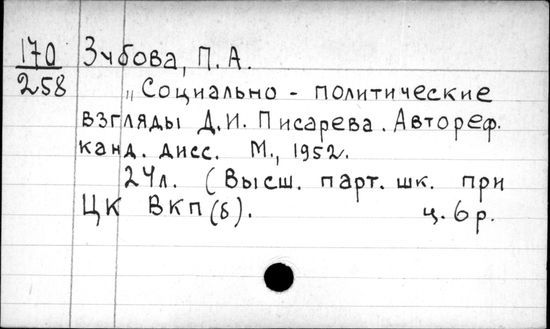 170
258
Зубова, П. А.
„Социально - политические
взгляды Д. И. Писарева. Автореф.
канд. дисс. М., 1952.
24л. (Высш. парт. шк. при
ЦК ВКП(б). ц. 6 р.